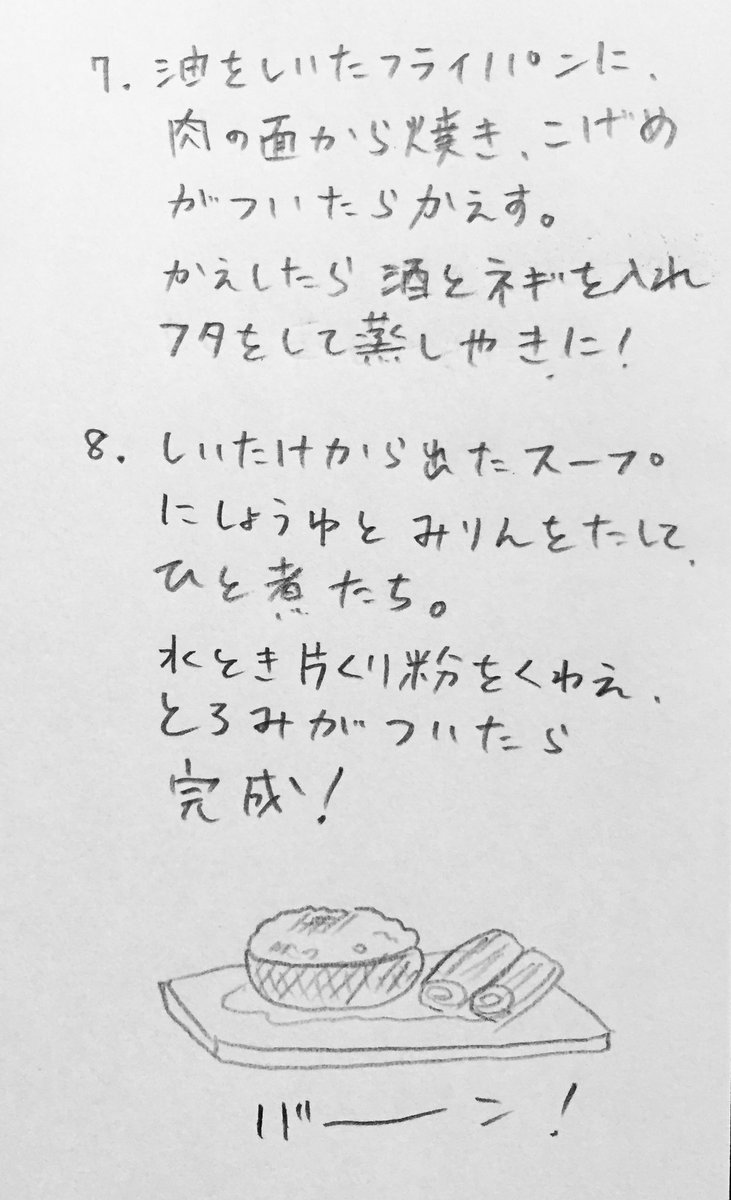 7. 油をしいたフライパンに、
肉の面から焼き、こげめ
がついたらかえす。
かえしたら酒とネギを入れ
フタをして蒸しやきに!
8. しいたけから出たスープ
にしょうゆとみりんをたして、
ひと煮たち。
水とき片くり粉をくわえ、
とろみがついたら
完成!
バーン!